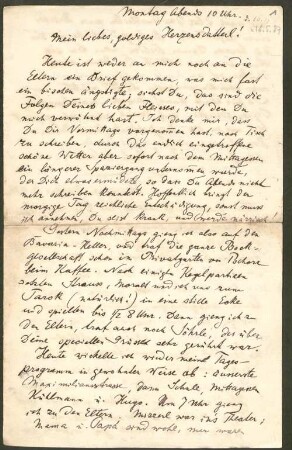 Montag Abends 10 Uhr.
Mein liebes, goldiges Herzensdatterl!
Heute ist weder an mich noch an die
Eltern ein Brief gekommen, was mich fast
ein bisschen ängstigte; siehst Du, das sind die
Folgen Deines lieben Fleisses, mit dem Du
mich verwöhnt hast. Ich denke mir, dass
Du Dir Vormittags vorgenommen hast, nach Tisch
zu schreiben, durch das endlich eingetroffene
schöne Wetter aber sofort nach dem Mittagessen
ein längerer Spaziergang unternommen wurde,
der Dich etwas ermüdete, so dass Du Abends nicht
mehr schreiben konntest. Hoffentlich bringt der
morgige Tag reichliche Entschädigung, sonst muss
ich annehmen, Du seist krank, und
Gestern Nachmittags gieng ich also auf den
Bavaria-Keller, und traf die ganze
gesellschaft schon im Privatgarten von Pschorr
beim Kaffee. Nach einigen Kegelpartieen
Strauss, und ich uns zum
Tarok (natürlich!) in eine stille Ecke
und spielten bis ½ 8 Uhr. Dann gieng ich zu
den Eltern, traf auch noch , der über
Deine speciellen Grüsse sehr gerührt war.
Heute wickelte ich wieder meine Tages-
programm in gewohnter Weise ab:
Maximilianstrasse, dann Schule, Mittagessen
u. Hugo. Um 7 Uhr gieng
ich zu den Eltern; war ins Theater;
Mama u. Papa sind wohl, nur